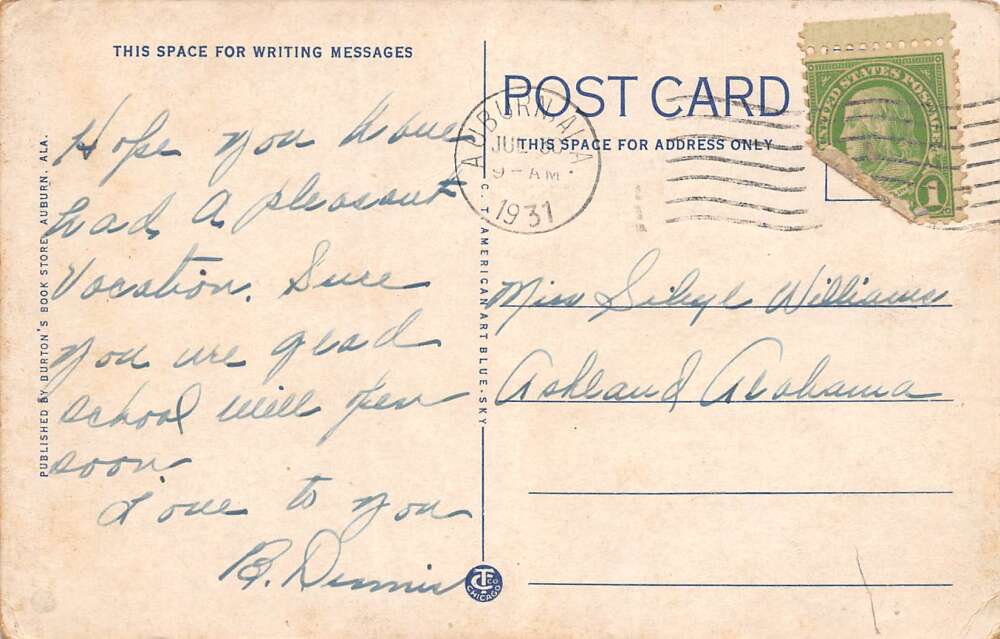 THIS SPACE FOR WRITING MESSAGES
POST CARD
THIS SPACE FOR ADDRESS ONLY
UNITED STATES POSTAGE
1
AUBURN, ALA.
JUL
9-AM
1931
Hope you have
had a pleasant
Vacation. Sure
you are glad
school will open
soon
Love to you
B. Dennis
Miss Sibyl Williams
Ashland Alabama
PUBLISHED BY BURTON'S BOOK STORE, AUBURN, ALA.
C. T. AMERICAN ART BLUE-SKY
CT CO
CHICAGO